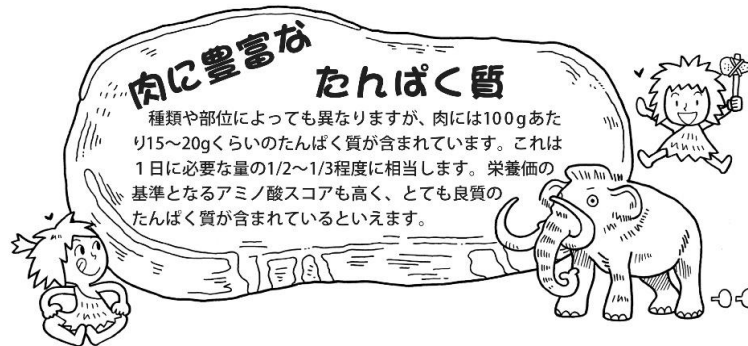 肉に豊富な
たんぱく質
種類や部位によっても異なりますが、肉には100gあた
り15～20gくらいのたんぱく質が含まれています。これは
１日に必要な量の1/2～1/3程度に相当します。栄養価の
基準となるアミノ酸スコアも高く、とても良質の
たんぱく質が含まれているといえます。